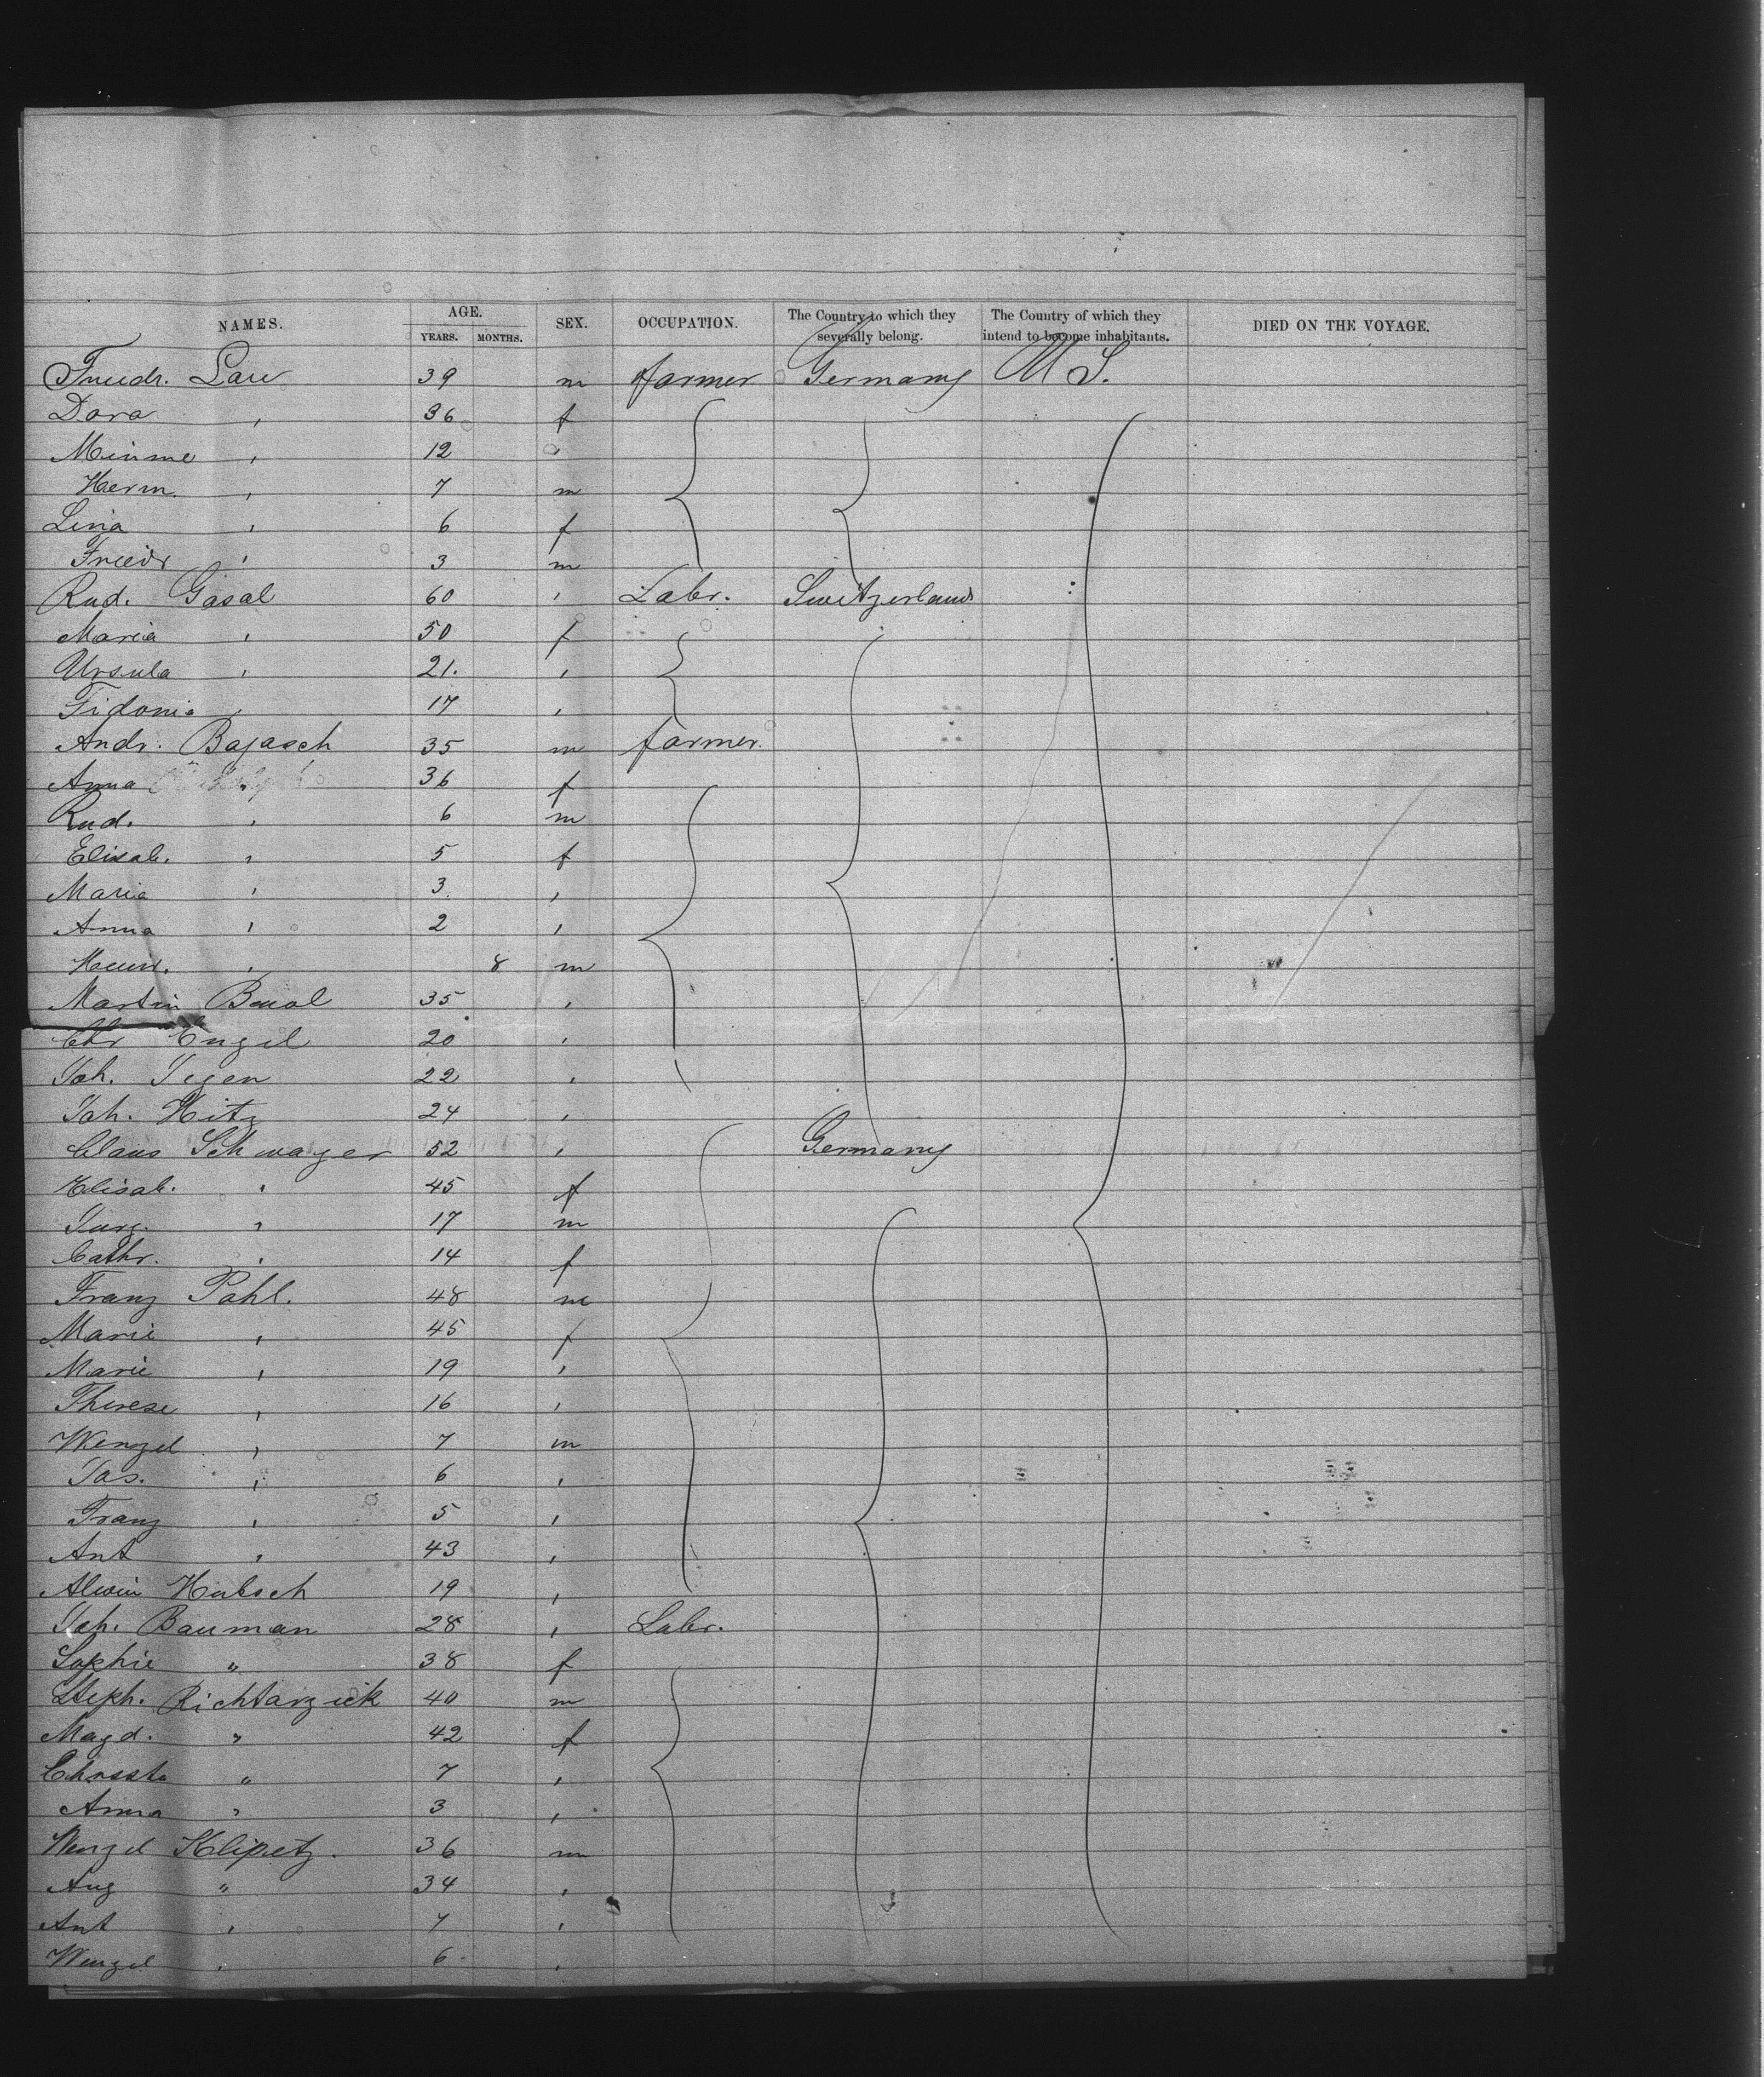 NAMES. AGE. YEARS. MONTHS. SEX. OCCUPATION. The Country to which they severally belong. The Country of which they intend to become inhabitants. DIED ON THE VOYAGE.
Friedr. Lau 39 m farmer Germany U S.
Dora , 36 f
Minme , 12 ,
Herm. , 7 m
Lina , 6 f
Friedr , 3 m
Rud. Gasal 60 , Labr. Switzerland
Maria , 50 f
Ursula , 21. ,
Fidonia , 17 ,
Andr. Bajasch 35 m farmer.
Anna " 36 f
Rud. , 6 m
Elisab. , 5 f
Maria , 3. ,
Anna , 2 ,
Heinr. , 8 m
Martin 35 ,
Chr Engel 20 ,
Joh. Jegen 22 ,
Joh. Hitz 24 ,
Claus Schwager 52 , Germany
Elisab. " 45 f
Jurg. " 17 m
Cathr. " 14 f
Franz Pahl. 48 m
Marie , 45 f
Marie , 19 ,
Therese , 16 ,
Wenzel , 7 m
Jos. , 6 ,
Franz , 5 ,
Ant , 43 ,
Alwin Hubsch 19 ,
Joh. Bauman 28 , Labr.
Sophie " 38 f
Steph. Richtarzick 40 m
Magd. " 42 f
" 7 ,
Anna " 3 ,
Wenzel Klipetz. 36 m
Aug " 34 ,
Ant , 7 ,
Wenzel , 6 ,